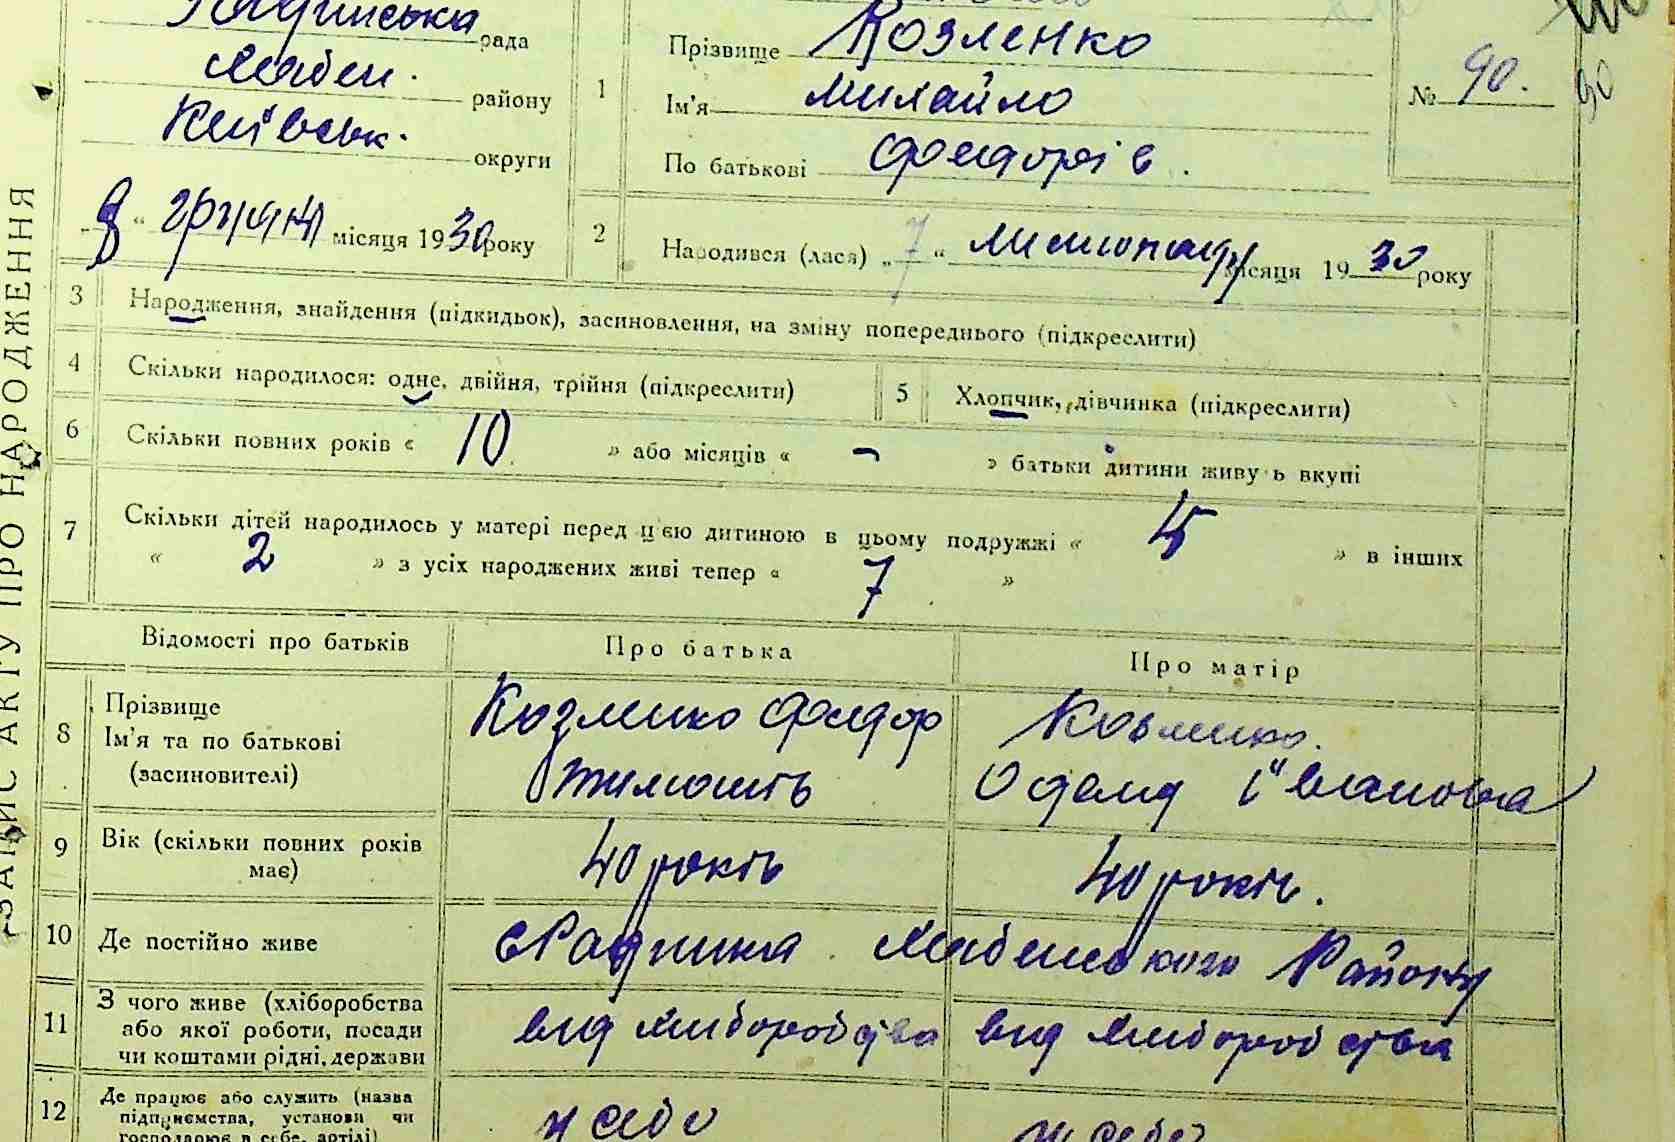 рада
району
Київськ. округи
„8“ грудня місяця 1930 року
1
Прізвище Козленко
Ім'я Михайло
По батькові Федорів.
№ 90.
90
2
Народився (лася) „7“ листопаду місяця 1930 року
ЗАПИС АКТУ ПРО НАРОДЖЕННЯ
3 Народження, знайдення (підкидьок), засиновлення, на зміну попереднього (підкреслити)
4 Скільки народилося: одне, двійня, трійня (підкреслити)
5 Хлопчик, дівчинка (підкреслити)
6 Скільки повних років « 10 » або місяців « - » батьки дитини живу ь вкупі
7 Скільки дітей народилось у матері перед цією дитиною в цьому подружжі « 5 » в інших
« 2 » з усіх народжених живі тепер « 7 »
Відомості про батьків
Про батька
Про матір
8 Прізвище
Ім'я та по батькові
(засиновителі)
Козленко Федор
Козленко.
Івановна
9 Вік (скільки повних років
має)
40 років
40 років.
10 Де постійно живе
Району
11 З чого живе (хліборобства
або якої роботи, посади
чи коштами рідні, держави
від хліборобства
від хліборобства
12 Де працює або служить (назва
підприємства, установи чи
господарює в себе, артілі)
у себе
у себе